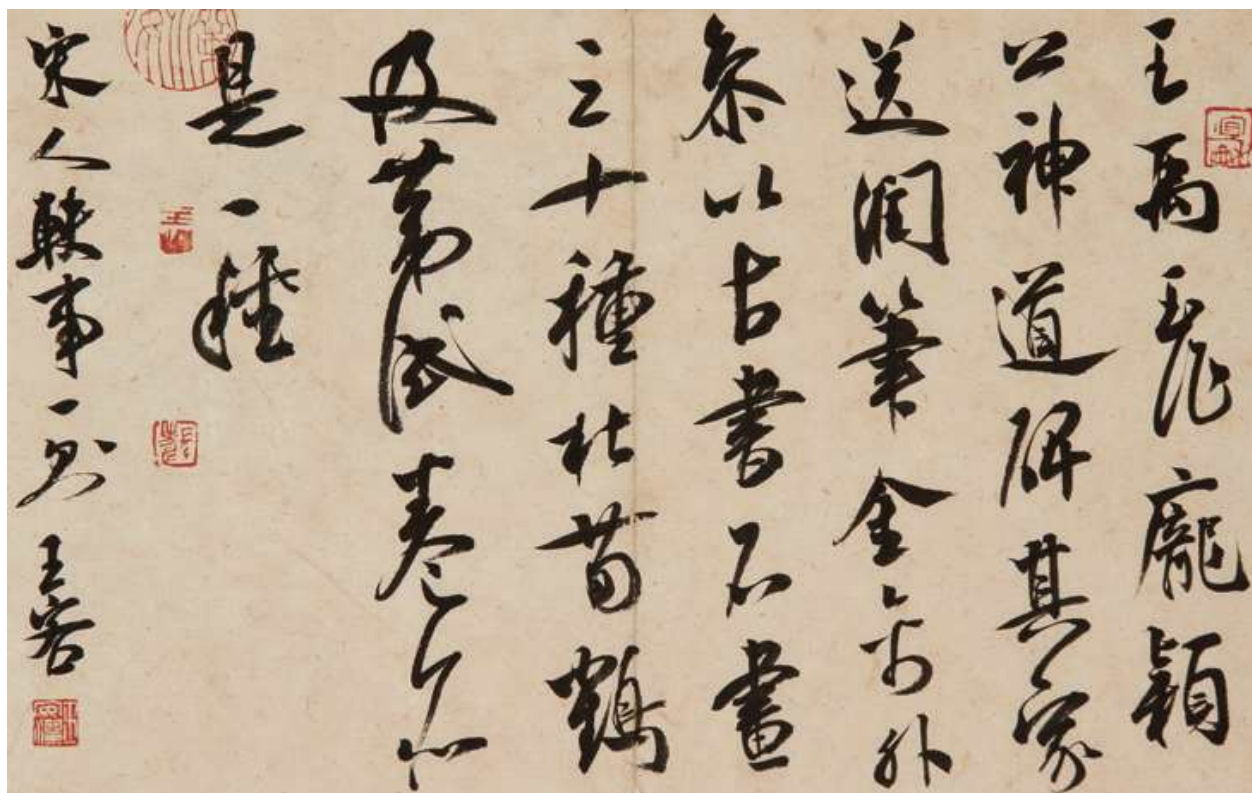 王禹玉作龐穎
公神道碑其家
送潤筆金帛外
參以古書名畫
三十種杜荀鶴
及第試卷亦
是一種
宋人軼事一則 王容